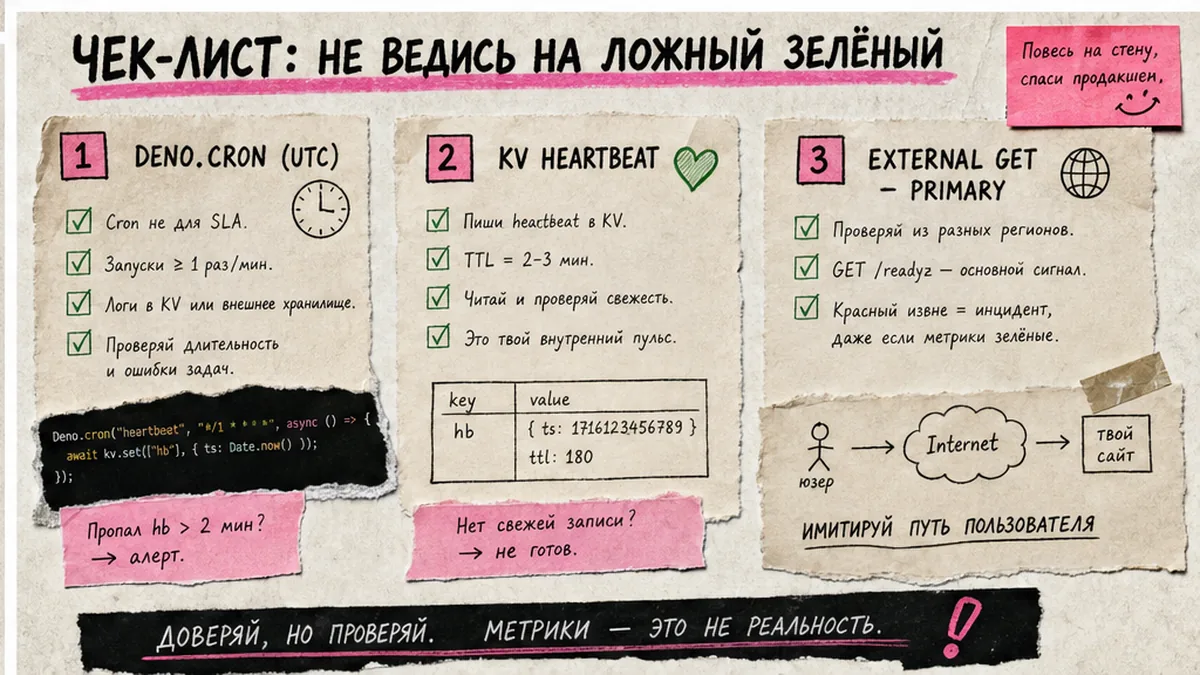 ЧЕК-ЛИСТ: НЕ ВЕДИСЬ НА ЛОЖНЫЙ ЗЕЛЁНЫЙ
Повесь на стену,
спаси продакшен,
1
DENO.CRON (UTC)
Cron не для SLA.
Запуски ≥ 1 раз/мин.
Логи в KV или внешнее хранилище.
Проверяй длительность
и ошибки задач.
Deno.cron("heartbeat", "*/1 * * * *", async () => {
await kv.set(["hb"], { ts: Date.now() });
});
Пропал hb > 2 мин?
→ алерт.
2
KV HEARTBEAT
Пиши heartbeat в KV.
TTL = 2–3 мин.
Читай и проверяй свежесть.
Это твой внутренний пульс.
key value
hb { ts: 1716123456789 }
ttl: 180
Нет свежей записи?
→ не готов.
3
EXTERNAL GET
– PRIMARY
Проверяй из разных регионов.
GET /readyz — основной сигнал.
Красный извне = инцидент,
даже если метрики зелёные.
юзер
Internet
твой
сайт
ИМИТИРУЙ ПУТЬ ПОЛЬЗОВАТЕЛЯ
ДОВЕРЯЙ, НО ПРОВЕРЯЙ. МЕТРИКИ — ЭТО НЕ РЕАЛЬНОСТЬ.
!